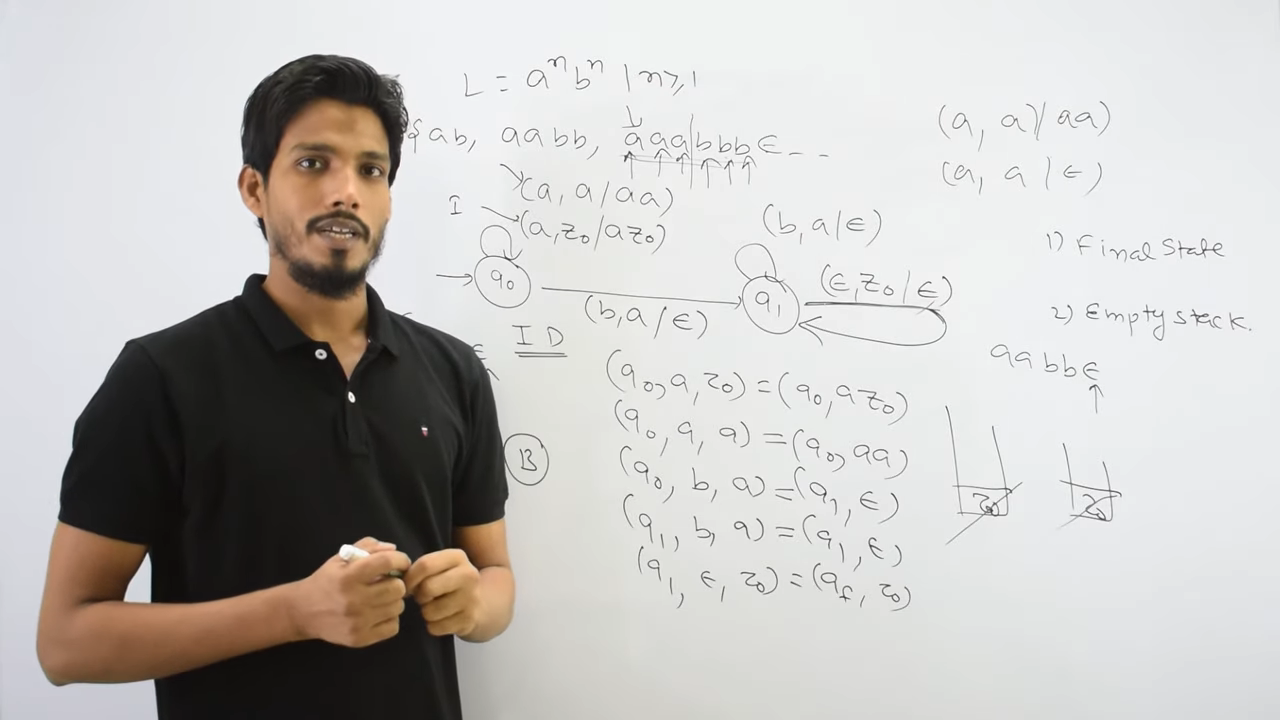 L = aⁿbⁿ | n≥1
{ab, aabb, aaa|bbb ϵ - - -
(a, a/aa)
I
(a, z₀/az₀)
(b, a/ϵ)
q₀
q₁
(b, a/ϵ)
(ϵ, z₀/ϵ)
ID
(q₀, a, z₀) = (q₀, az₀)
(q₀, a, a) = (q₀, aa)
(q₀, b, a) = (q₁, ϵ)
(q₁, b, a) = (q₁, ϵ)
(q₁, ϵ, z₀) = (qf, z₀)
B
(a, a)/aa)
(a, a/ϵ)
1) Final State
2) Empty stack.
aabbϵ
z₀
z₀